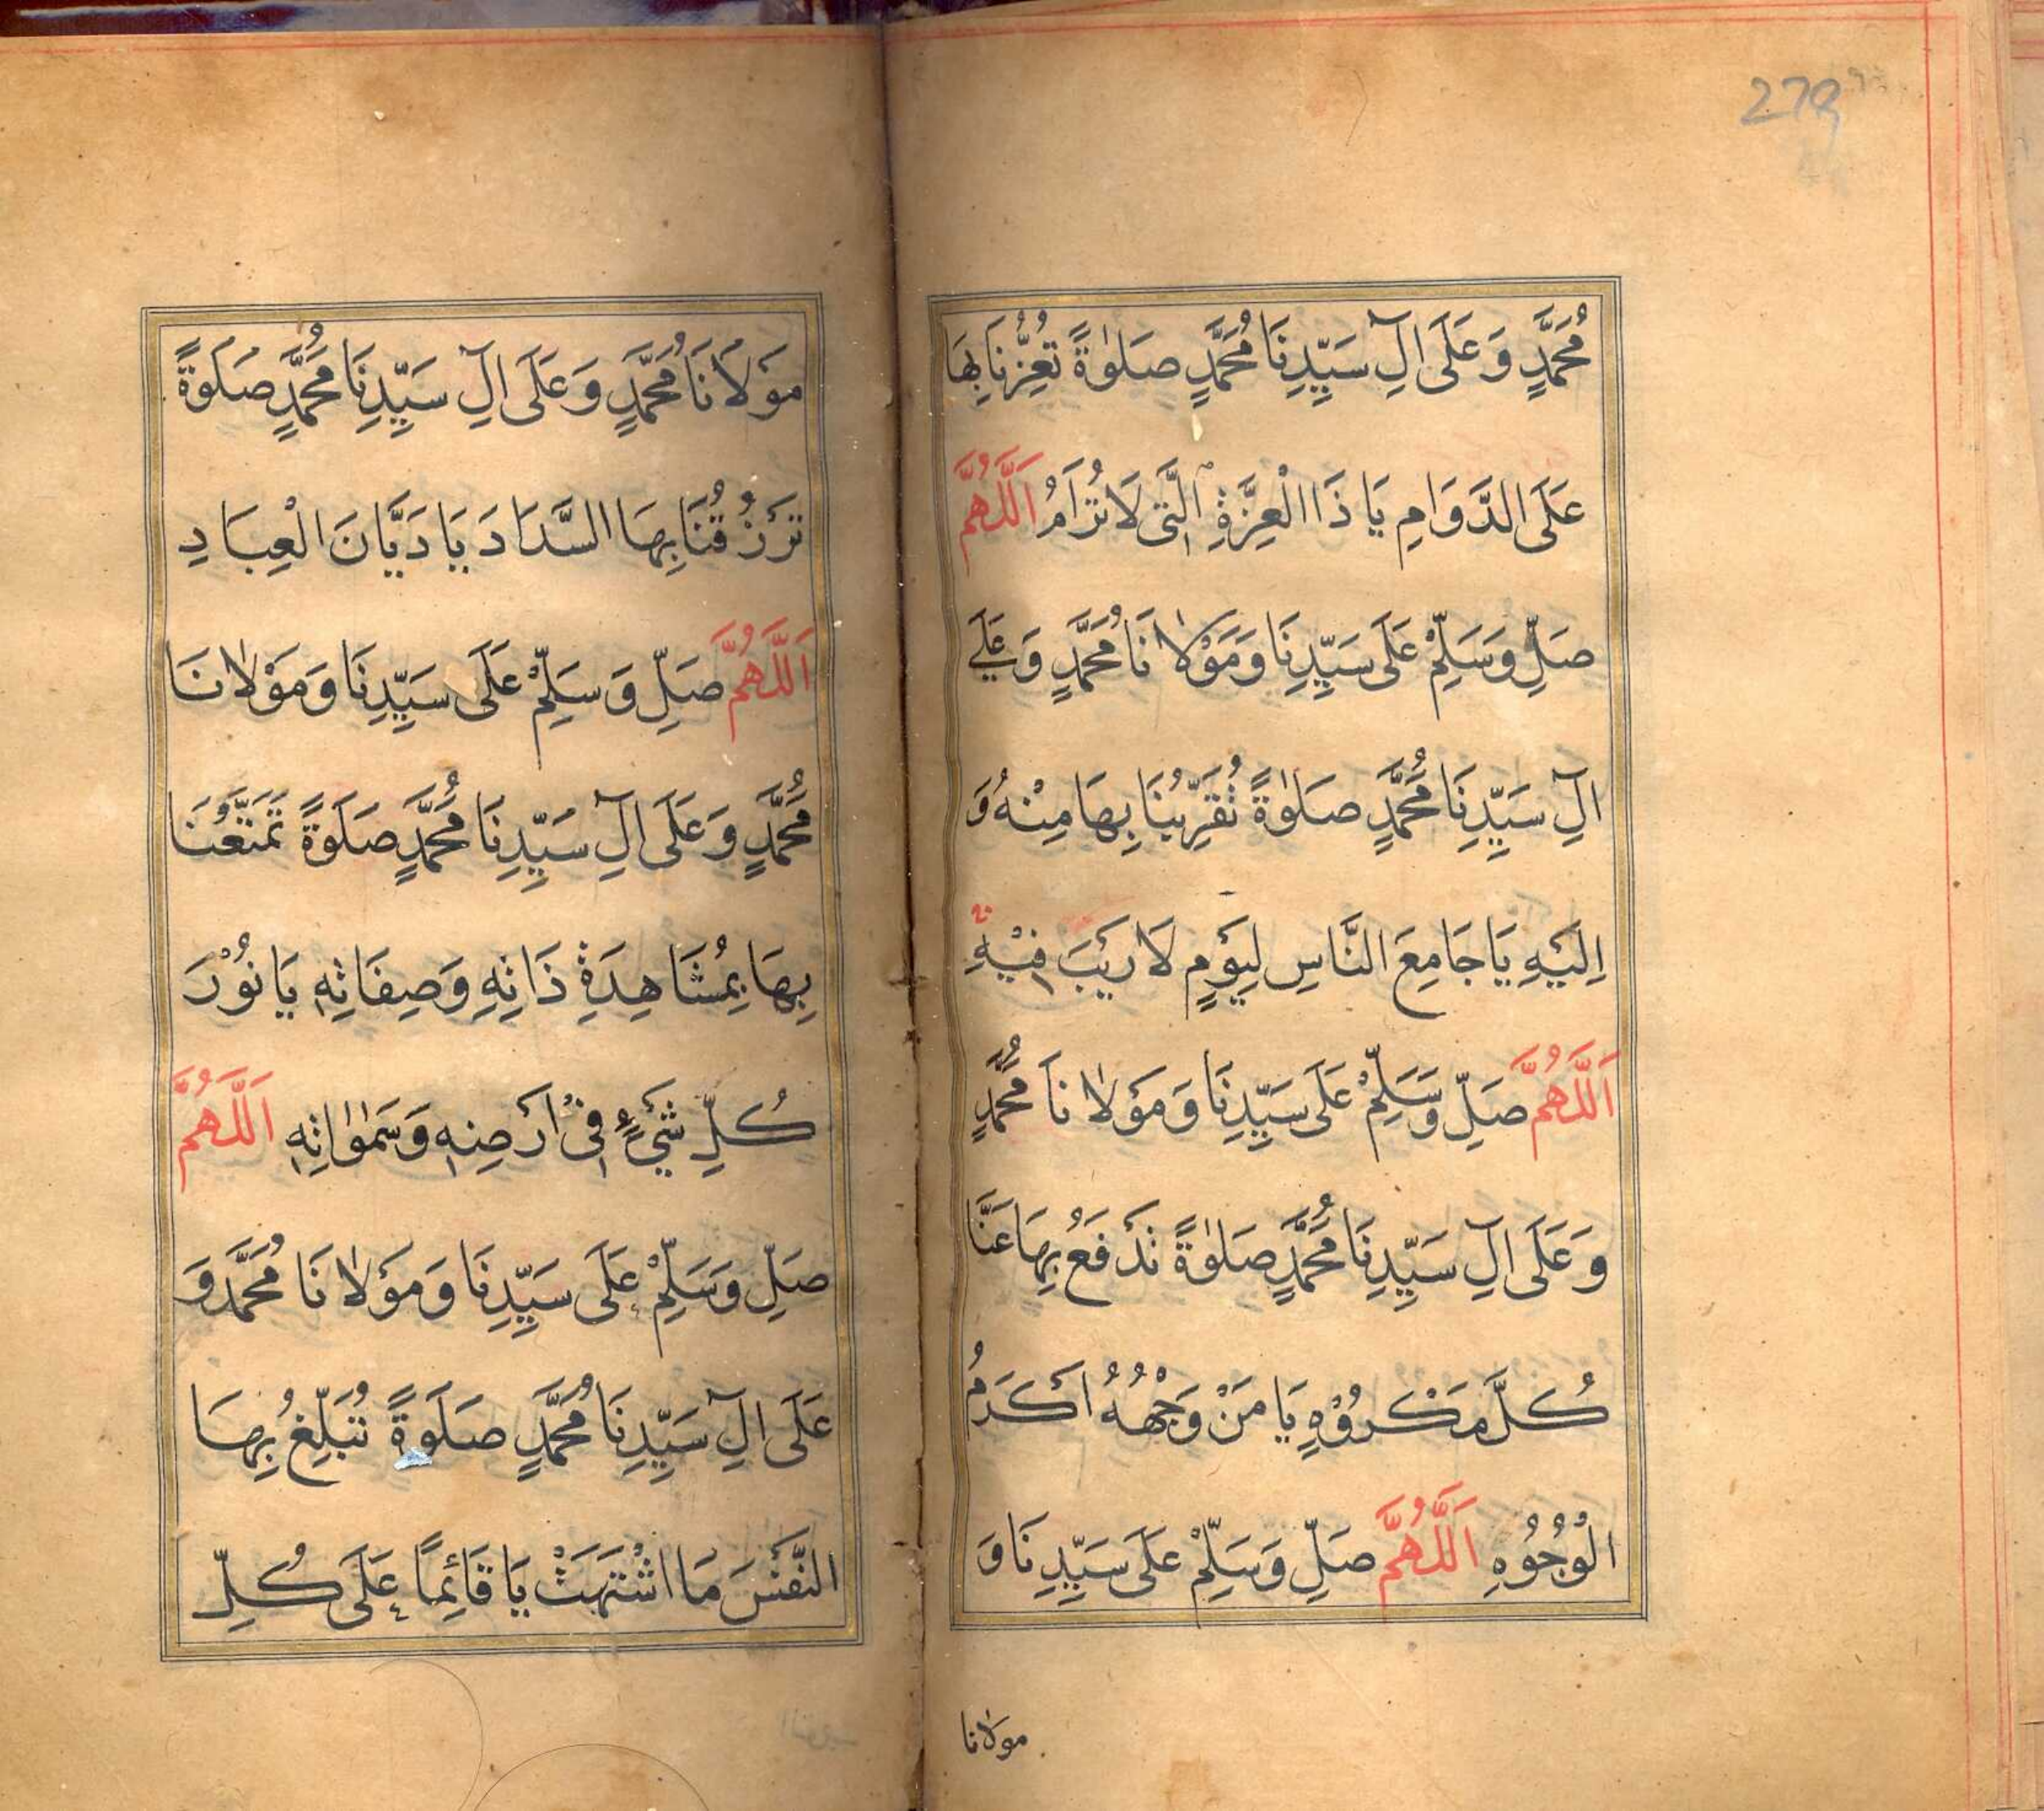 279
مُحَمَّدٍ وَعَلَى الِ سَيِّدِنَا مُحَمَّدٍ صَلٰوةً تُعِزُّنَا بِهَا
عَلَى الدَّوَامِ يَا ذَا الْعِزَّةِ الَّتِى لَا تُرَامُ اَللّٰهُمَّ
صَلِّ وَسَلِّمْ عَلَى سَيِّدِنَا وَمَوْلَانَا مُحَمَّدٍ وَعَلَى
اٰلِ سَيِّدِنَا مُحَمَّدٍ صَلٰوةً تُقَرِّبُنَا بِهَا مِنْهُ وَ
اِلَيْهِ يَا جَامِعَ النَّاسِ لِيَوْمٍ لَا رَيْبَ فِيْهِ
اَللّٰهُمَّ صَلِّ وَسَلِّمْ عَلَى سَيِّدِنَا وَمَوْلَانَا مُحَمَّدٍ
وَعَلَى اٰلِ سَيِّدِنَا مُحَمَّدٍ صَلٰوةً تَدْفَعُ بِهَا عَنَّا
كُلَّ مَكْرُوْهٍ يَا مَنْ وَجْهُهُ اَكْرَمُ
الْوُجُوْهِ اَللّٰهُمَّ صَلِّ وَسَلِّمْ عَلَى سَيِّدِنَا وَ
مولانا
مَوْلَانَا مُحَمَّدٍ وَعَلَى اٰلِ سَيِّدِنَا مُحَمَّدٍ صَلَوةً
تَرْزُقُنَا بِهَا السَّدَادَ يَا دَيَّانَ الْعِبَادِ
اَللّٰهُمَّ صَلِّ وَسَلِّمْ عَلَى سَيِّدِنَا وَمَوْلَانَا
مُحَمَّدٍ وَعَلَى اٰلِ سَيِّدِنَا مُحَمَّدٍ صَلَوةً تُمَتِّعُنَا
بِهَا بِمُشَاهِدَةِ ذَاتِهِ وَصِفَاتِهِ يَا نُوْرَ
كُلِّ شَيْءٍ فِىْ اَرْضِهِ وَسَمٰوٰاتِهِ اَللّٰهُمَّ
صَلِّ وَسَلِّمْ عَلَى سَيِّدِنَا وَمَوْلَانَا مُحَمَّدٍ وَ
عَلَى اٰلِ سَيِّدِنَا مُحَمَّدٍ صَلَوةً تُبَلِّغُ بِهَا
النَّفْسَ مَا اشْتَهَتْ يَا قَائِمًا عَلَى كُلِّ